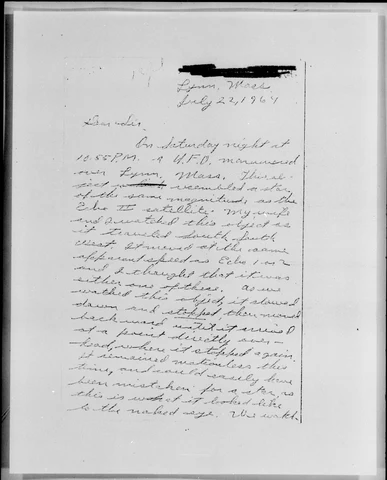 Lynn, Mass.
July 22, 1964
Dear Sir,
On Saturday night at
10:55 P.M. a U.F.O. maneuvered
over Lynn, Mass. The ob-
ject resembled a star,
of the same magnitude as the
Echo II satellite. My wife
and I watched this object as
it traveled South, South
West. It moved at the same
apparent speed as Echo 1 or 2
and I thought that it was
either one of these. As we
watched this object, it slowed
down and stopped, then moved
backward until it arrived
at a point directly over-
head, where it stopped again.
It remained motionless this
time, and could easily have
been mistaken for a star, as
this is what it looked like
to the naked eye. We watch-